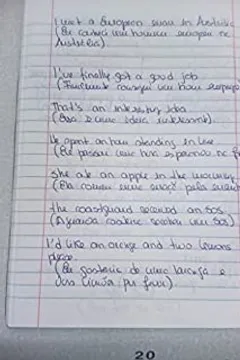 I met a European man in Austria
(Eu conheci um homem europeu na
Austria)
I've finally got a good job
(Finalmente consegui um bom emprego
That's an interesting idea
(Essa é uma ideia interessante).
He spent an hour standing in line
(Ele passou uma hora esperando na f
She ate an apple in the morning
(Ela comeu uma maçã pela manhã
The coastguard received an SOS.
(A guarda costeira recebeu um SOS)
I'd like an orange and two lemons
please.
(Eu gostaria de uma laranja e
dois limões por favor).
20